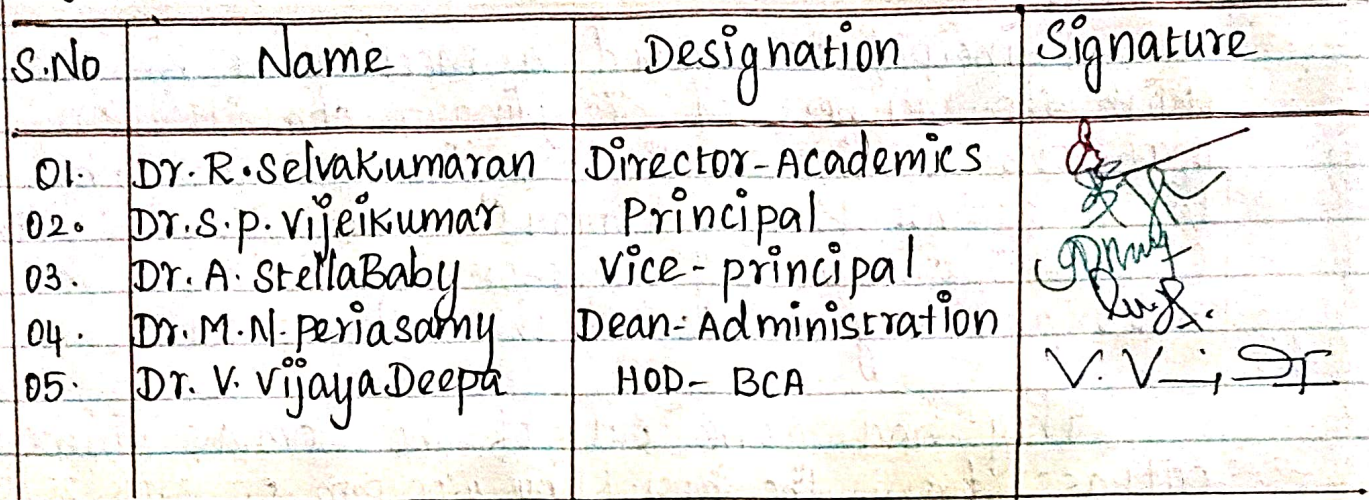 S.No Name Designation Signature
01. Dr. R. Selvakumaran Director-Academics
02. Dr. S. P. Vijeikumar Principal
03. Dr. A. StellaBaby Vice-principal
04. Dr. M. N. Periasamy Dean-Administration
05. Dr. V. Vijaya Deepa HOD- BCA